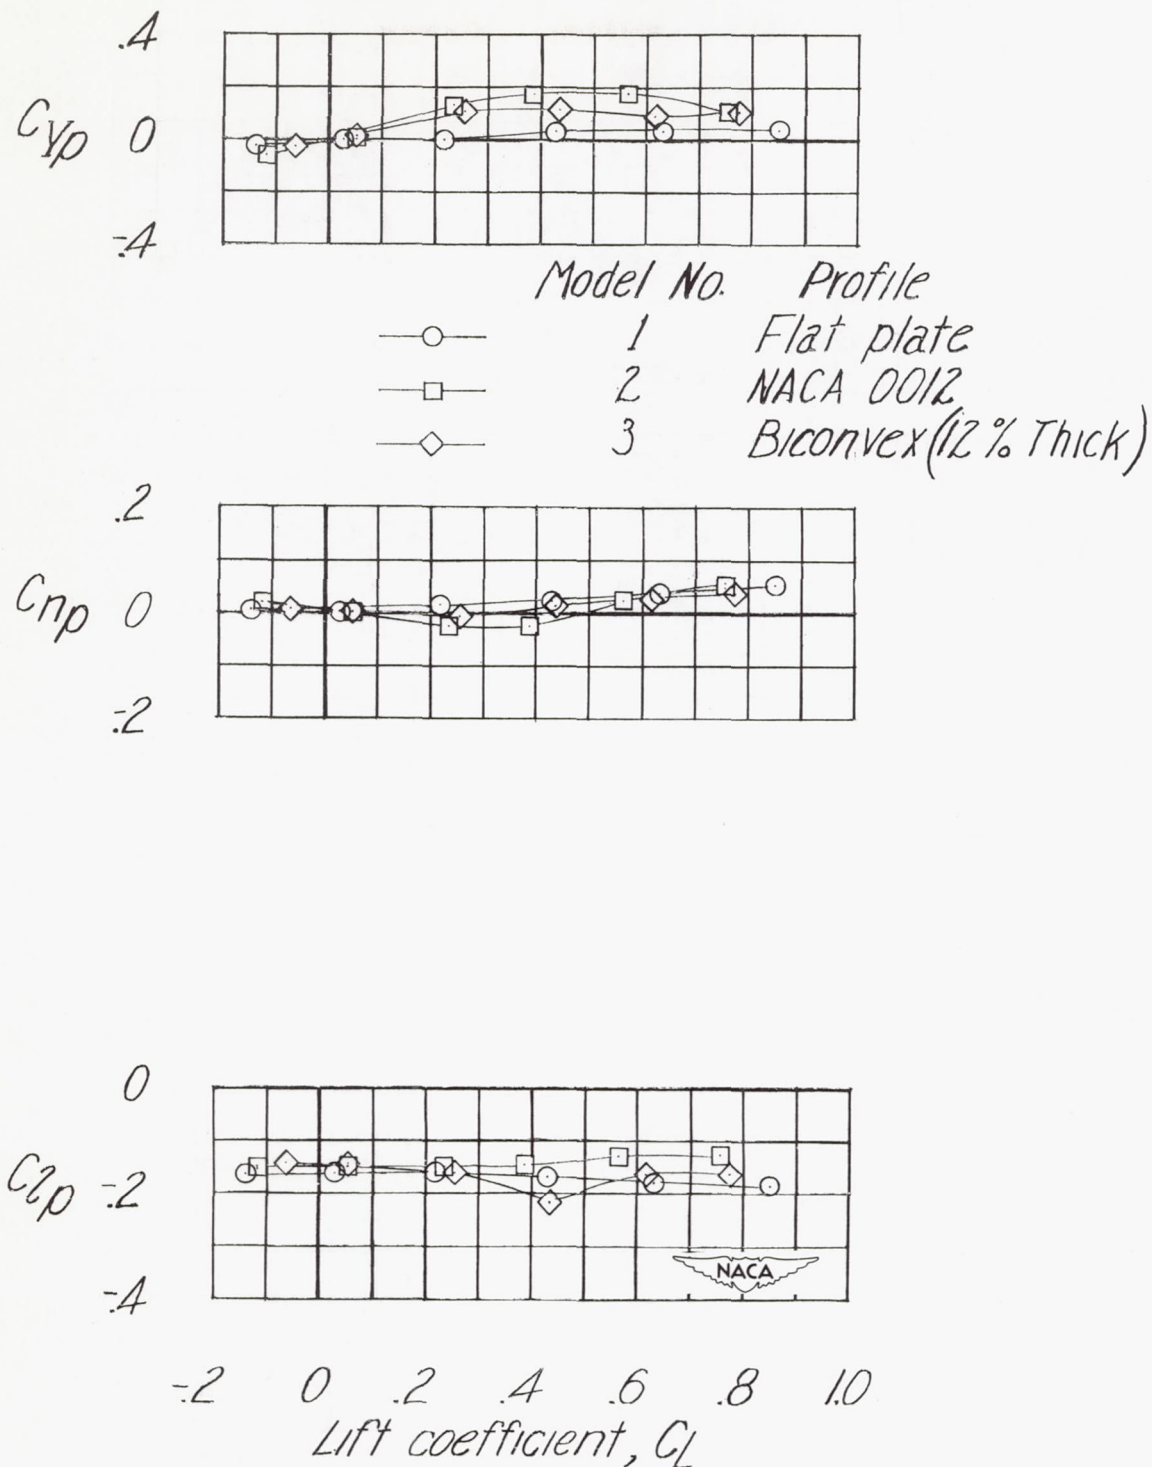 .4
C_Yp 0
-.4
Model No. Profile
1 Flat plate
2 NACA 0012
3 Biconvex (12% Thick)
.2
C_np 0
-.2
0
C_lp -.2
-.4
NACA
-.2 0 .2 .4 .6 .8 1.0
Lift coefficient, C_L